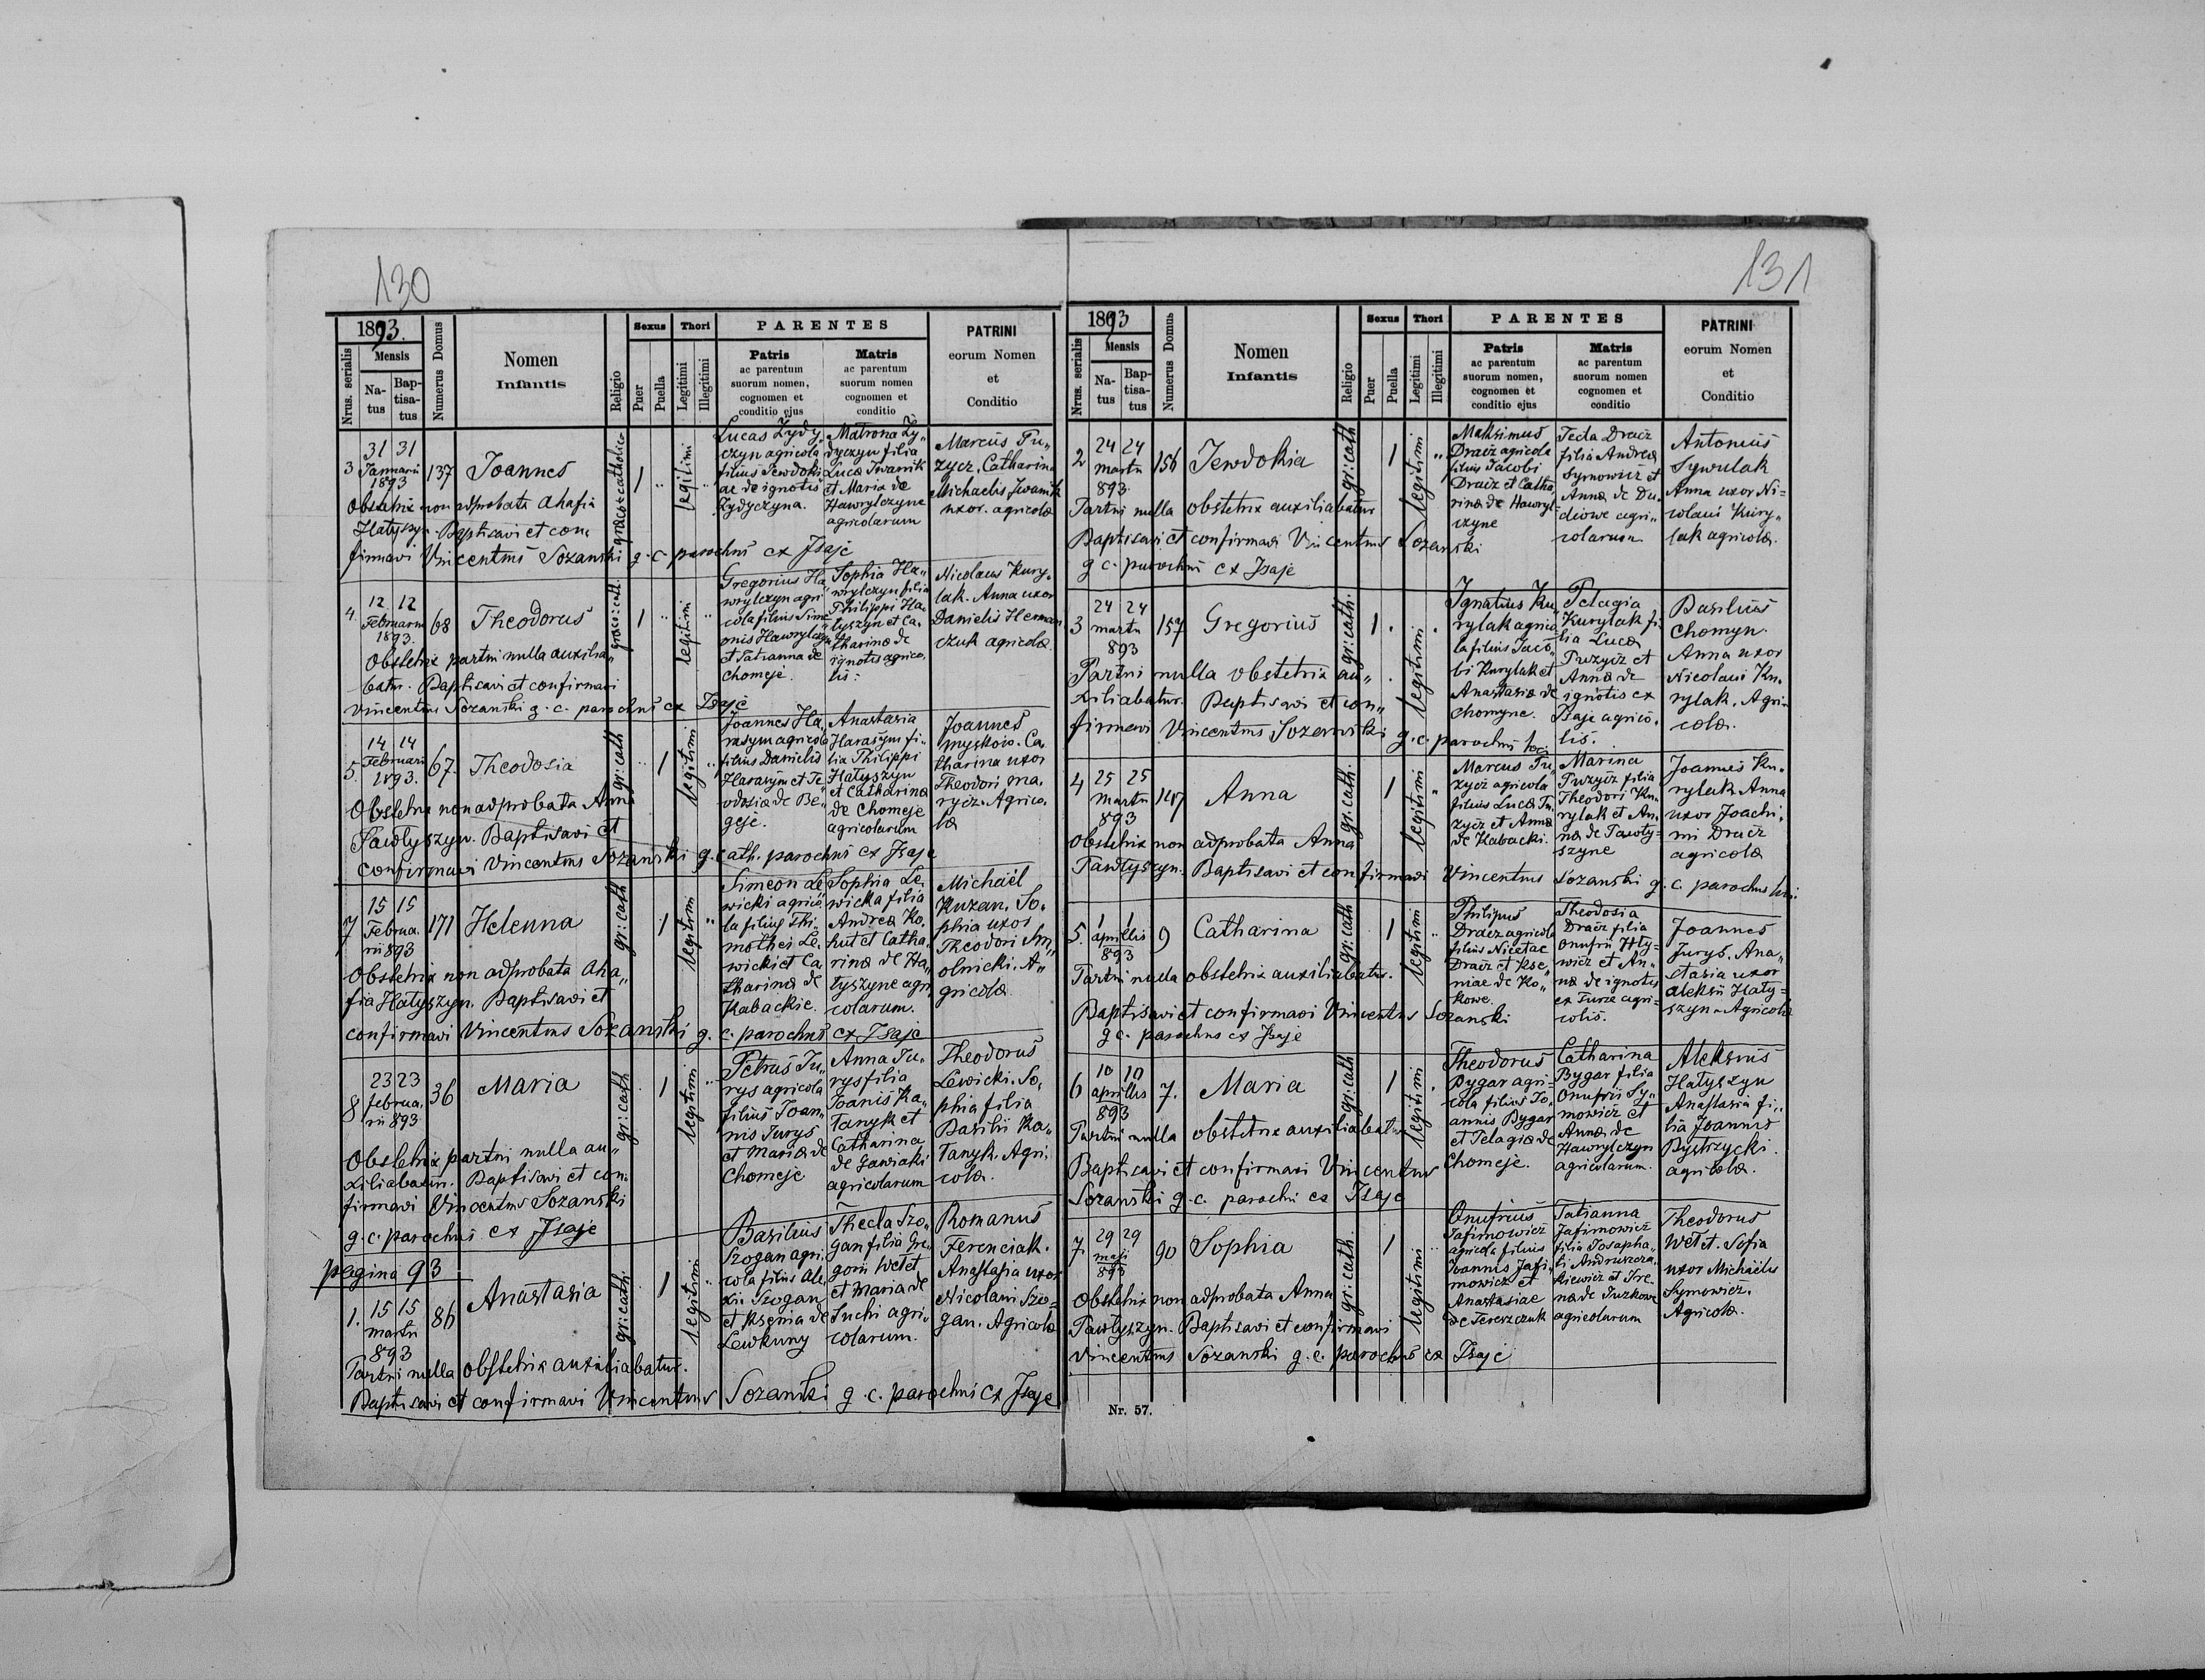 130
1893.
Nrus. serialis
Mensis
Na-
tus
Bap-
tisa-
tus
Numerus Domus
Nomen
Infantis
Religio
Sexus
Puer
Puella
Thori
Legitimi
Illegitimi
PARENTES
Patris
ac parentum
suorum nomen,
cognomen et
conditio ejus
Matris
ac parentum
suorum nomen
cognomen et
conditio
PATRINI
eorum Nomen
et
Conditio
3
31 31
Januarii
1893
137
Joannes
graeco catholic.
1
legitimi
Lucas Zydy„
czyn agricola
filius Jewdoki
ae de ignotis
Zydyczyna.
Matrona Zy„
dyczyn filia
Lucæ Iwanik
et Mariæ de
Hawrylczyne
agricolarum
Marcus Tu„
zycz, Catharina
Michaelis Iwanik
uxor. agricolæ
Obstetrix non adprobata Ahafia
Hatyszyn. Baptisavi et con„
firmavi Vincentius Sozanski g. c. parochus ex Isaje
4.
12 12
Februarii
1893.
68
Theodorus
graeco: cath.
1
legitimi
Gregorius Ha„
wrylczyn agri„
cola filius Sime„
onis Hawrylczyn
et Tatianna de
Chomeje.
Sophia Ha„
wrylczyn filia
Philippi Ha„
tyszyn et Ca„
tharinæ de
ignotis agrico„
lis:
Nicolaus Kury„
lak. Anna uxor
Danielis Herman
czuk agricolæ.
Obstetrix partui nulla auxilia„
batur. Baptisavi et confirmavi
Vincentius Sozanski g. c. parochus ex Isaje
5.
14 14
Februarii
1893.
67.
Theodosia
gr: cath
1
legitimi
Joannes Ha„
rasym agricola
filius Danielis
Harasym et Te„
odosiæ de Be„
geje.
Anastasia
Harasym fi„
lia Philippi
Hatyszyn
et Catharinæ
de Chomeje
agricolarum
Joannes
Myskow. Ca„
tharina uxor
Theodori Ma„
rycz. Agrico„
læ
Obstetrix non adprobata Anna
Pawlyszyn. Baptisavi et
confirmavi Vincentius Sozanski g. cath. parochus ex Isaje
7
15 15
Februa„
rii 893
171
Helenna
gr: cath
1
legitimi
Simeon Le„
wicki agrico„
la filius Thi„
mothei Le„
wicki et Ca„
tharinæ de
Kabackie.
Sophia Le„
wicka filia
Andreæ Ko„
hut et Catha„
rinæ de Ha„
tyszyne agri„
colarum.
Michaël
Kuzan. So„
phia uxor
Theodori Sm„
olnicki. A„
gricolæ
Obstetrix non adprobata Aha„
fia Hatyszyn. Baptisavi et
confirmavi Vincentius Sozanski g. c. parochus ex Isaje
8
23 23
februa„
rii 893
36
Maria
gr: cath
1
legitimi
Petrus Ju„
rys agricola
filius Joan„
nis Jurys
et Mariæ de
Chomeje
Anna Ju„
rys filia
Joanis Ka„
Tanyk et
Catharina
de Gawiaki
agricolarum
Theodorus
Lewicki. So„
phia filia
Basilii Ka„
Tanyk. Agri„
colæ.
Obstetrix partui nulla au„
xiliabatur. Baptisavi et con„
firmavi Vincentius Sozanski
g. c. parochus ex Isaje
pagina 93
1.
15 15
Martii
893
86
Anastasia
gr: cath.
1
legitimi
Basilius
Szogan agri„
cola filius Ale„
xii Szogan
et Ksenia de
Lewkuny
Thecla Szo„
gan filia Gre„
gorii Wetet
et Mariæ de
Suchi agri„
colarum.
Romanus
Ferenciak.
Anastasia uxor
Nicolaui Szo„
gan. Agricolæ
Partui nulla obstetrix auxiliabatur.
Baptisavi et confirmavi Vincentius Sozanski g. c. parochus ex Isaje
131
1893
Nrus. serialis
Mensis
Na-
tus
Bap-
tisa-
tus
Numerus Domus
Nomen
Infantis
Religio
Sexus
Puer
Puella
Thori
Legitimi
Illegitimi
PARENTES
Patris
ac parentum
suorum nomen,
cognomen et
conditio ejus
Matris
ac parentum
suorum nomen
cognomen et
conditio
PATRINI
eorum Nomen
et
Conditio
2
24 24
Martii
893
156
Jewdokia
gr: cath
1
legitimi
Maksimus
Dracz agricola
filius Jacobi
Dracz et Catha„
rinæ de Hawryl„
czyne
Tecla Dracz
filia Andreæ
Symowicz et
Annæ de Du„
diowe agri„
colarum
Antonius
Sywulak
Anna uxor Ni=
colaui Kury„
lak agricolæ.
Partui nulla obstetrix auxiliabatur
Baptisavi et confirmavi Vincentius Sozanski
g c. parochus ex Isaje
3
24 24
Martii
893
157
Gregorius
gr: cath.
1.
legitimi
Ignatius Ku„
rylak agrico„
la filius Jaco„
bi Kurylak et
Anastasiæ de
Chomyne.
Pelagia
Kurylak fi„
lia Lucæ
Tuzycz et
Annæ de
ignotis ex
Isaje agrico„
lis.
Basilius
Chomyn.
Anna uxor
Nicolaui Ku„
rylak. Agri„
colæ.
Partui nulla obstetrix au„
xiliabatur. Baptisavi et con„
firmavi Vincentius Sozanski g. c. parochus loci
4
25 25
Martii
893
147
Anna
gr: cath.
1
legitimi
Marcus Tu„
zycz agricola
filius Lucæ Tu„
zycz et Annæ
de Kabacki.
Marina
Tuzycz filia
Theodori Ku„
rylak et An„
næ de Pawly=
szyne
Joannes Ku„
rylak Anna
uxor Joachi„
mi Dracz
agricolæ
Obstetrix non adprobata Anna
Pawlyszyn. Baptisavi et confirmavi Vincentius Sozanski g. c. parochus loci.
5.
1 1
Aprilis
893
9
Catharina
gr: cath
1
legitimi
Philipus
Dracz agricola
filius Nicetae
Dracz et Kse„
niae de Ko„
kowe.
Theodosia
Dracz filia
Onufrii Hly=
wicz et An„
næ de ignotis
ex Turze agri=
colis.
Joannes
Jurys. Ana„
stasia uxor
Aleksii Haty=
szyn. Agricolæ
Partui nulla obstetrix auxiliabatur.
Baptisavi et confirmavi Vincentius Sozanski
g c. parochus ex Isaje
6
10 10
Aprilis
893
7.
Maria
gr: cath
1
legitimi
Theodorus
Bygar agri=
cola filius Jo„
annis Bygar
et Pelagiæ de
Chomeje.
Catharina
Bygar filia
Onufrii Sy„
mowicz et
Annæ de
Hawrylczyn
agricolarum.
Aleksius
Hatyszyn
Anastasia fi„
lia Joannis
Bystrzycki.
agricolæ.
Partui nulla obstetrix auxiliabatur
Baptisavi et confirmavi Vincentius
Sozanski g. c. parochus ex Isaje
7.
29 29
Maji
893
90
Sophia
gr: cath.
1
legitimi
Onufrius
Jafimowicz
agricola filius
Joannis Jafi„
mowicz et
Anastasiae
de Tereszczuk
Tatianna
Jafimowicz
filia Josapha„
ti Andruszcza„
kiewicz et Ire„
næ de Tuzkowe
agricolarum
Theodorus
Wetet. Sofia
uxor Michaëlis
Symowicz.
Agricolæ.
Obstetrix non adprobata Anna
Pawlyszyn. Baptisavi et confirmavi
Vincentius Sozanski g. c. parochus ex Isaje
Nr. 57.